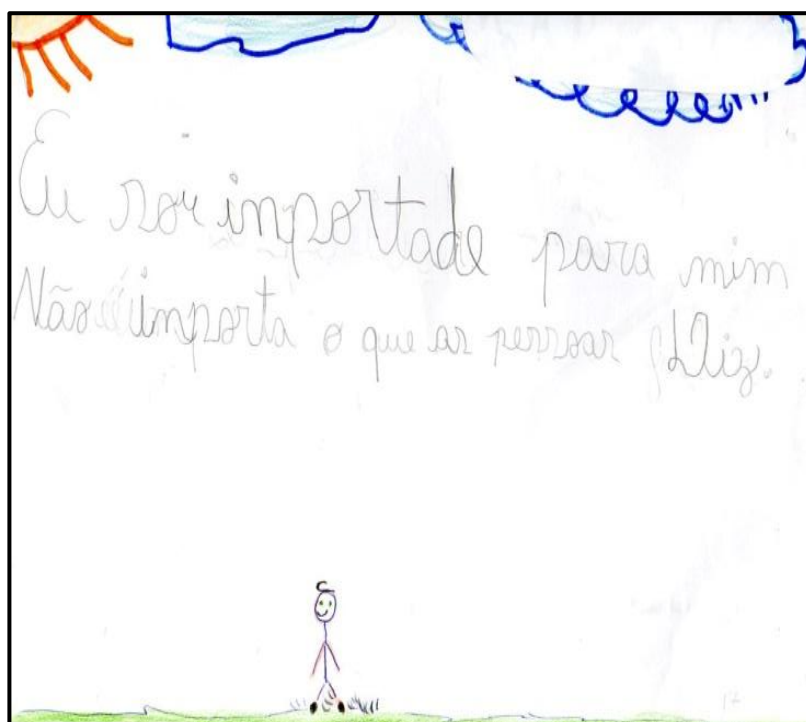 Eu sou inportade para mim
Não inporta o que as pessoas Diz.
17